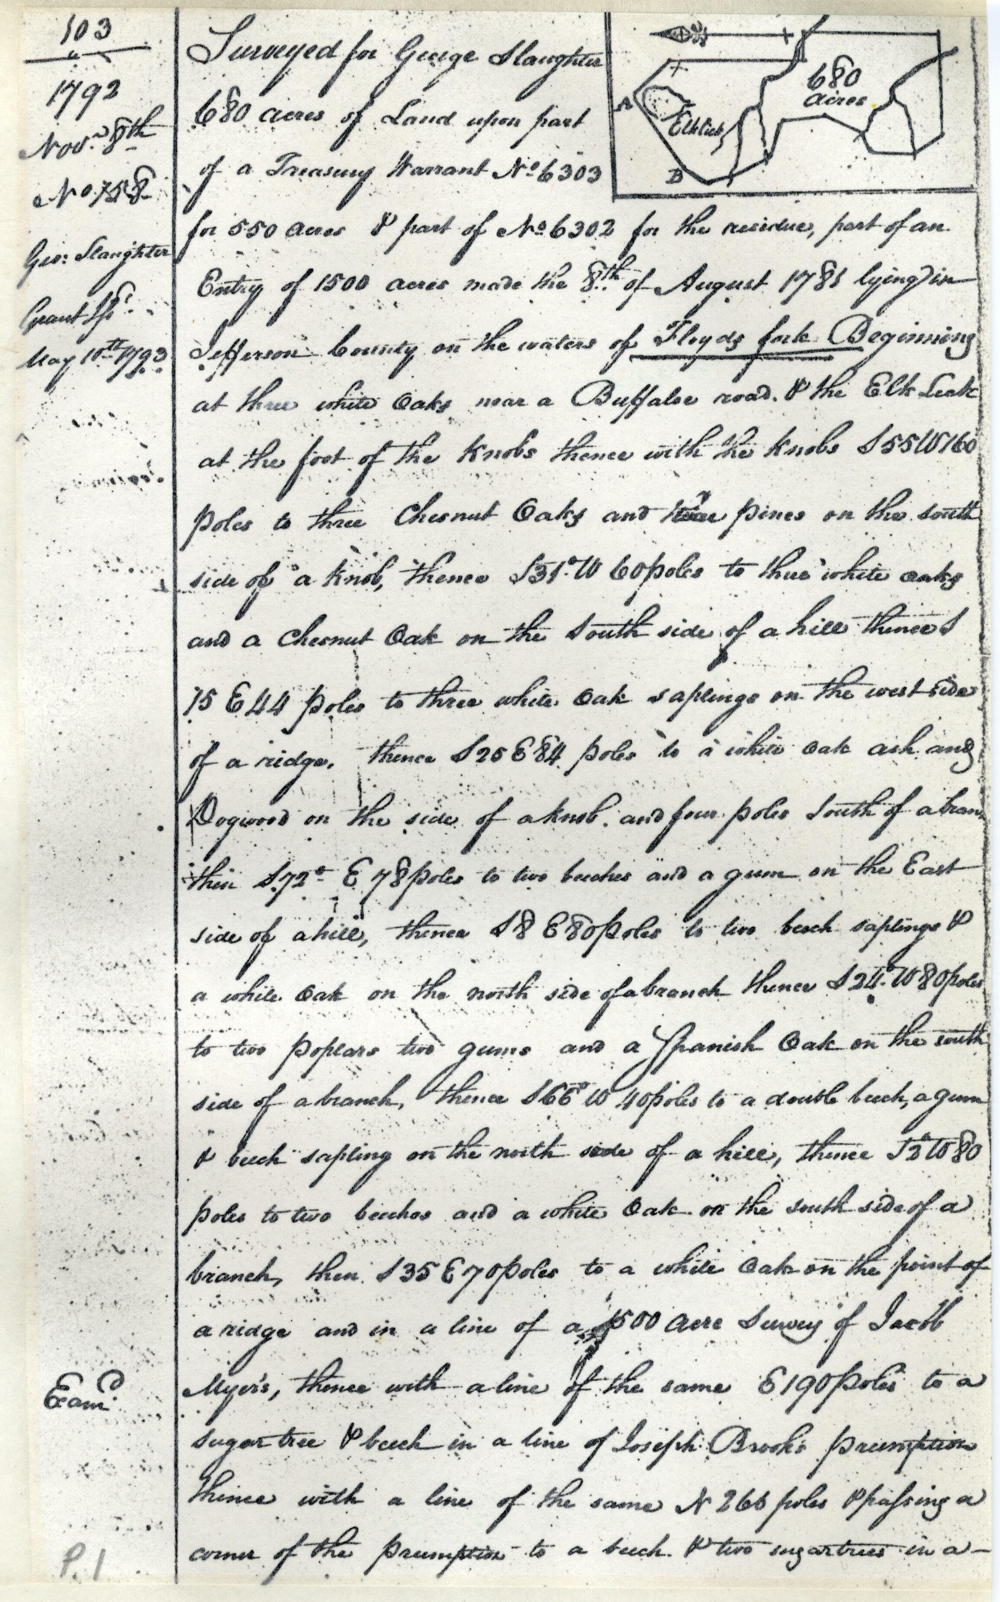 103
1792
Novr. 8th
No 758
Geo: Slaughter
Grant Isd.
May 10th 1793
Surveyed for George Slaughter
680 acres of Land upon part
of a Treasury Warrant No 6303
for 550 acres & part of No 6302 for the residue, part of an
Entry of 1500 acres made the 8th of August 1781 lying in
Jefferson County on the waters of Floyds fork Beginning
at three white Oaks near a Buffaloe road. & the Elk Lick
at the foot of the Knobs thence with the Knobs S55W160
poles to three Chesnut Oaks and three pines on the south
side of a Knob, thence S31°W 60 poles to three white oaks
and a Chesnut Oak on the South side of a hill thence S
15 E 44 poles to three white Oak saplings on the west side
of a ridge. thence S25 E 84 poles to a white oak ash and
Dogwood on the side of a knob. and four poles South of a bran
then S.72° E 78 poles to two beeches and a gum on the East
side of a hill, thence S8 E 80 poles to two beech saplings &
a white Oak on the north side of a branch thence S24°W 80 poles
to two poplars two gums and a Spanish Oak on the south
side of a branch, thence S66° W 40 poles to a double beech, a gum
& beech sapling on the north side of a hill, thence S2°W 80
poles to two beeches and a white Oak on the south side of a
branch, then S35 E 70 poles to a white Oak on the point of
a ridge and in a line of a 1500 Acre Survey of Jacob
Myers, thence with a line of the same E 190 poles to a
sugar tree & beech in a line of Joseph Brooks preemption
thence with a line of the same N 266 poles & passing a
corner of the preemption to a beech & two sugartrees in a -
Eamd.
P. 1
680
acres
A
Elk lick
B